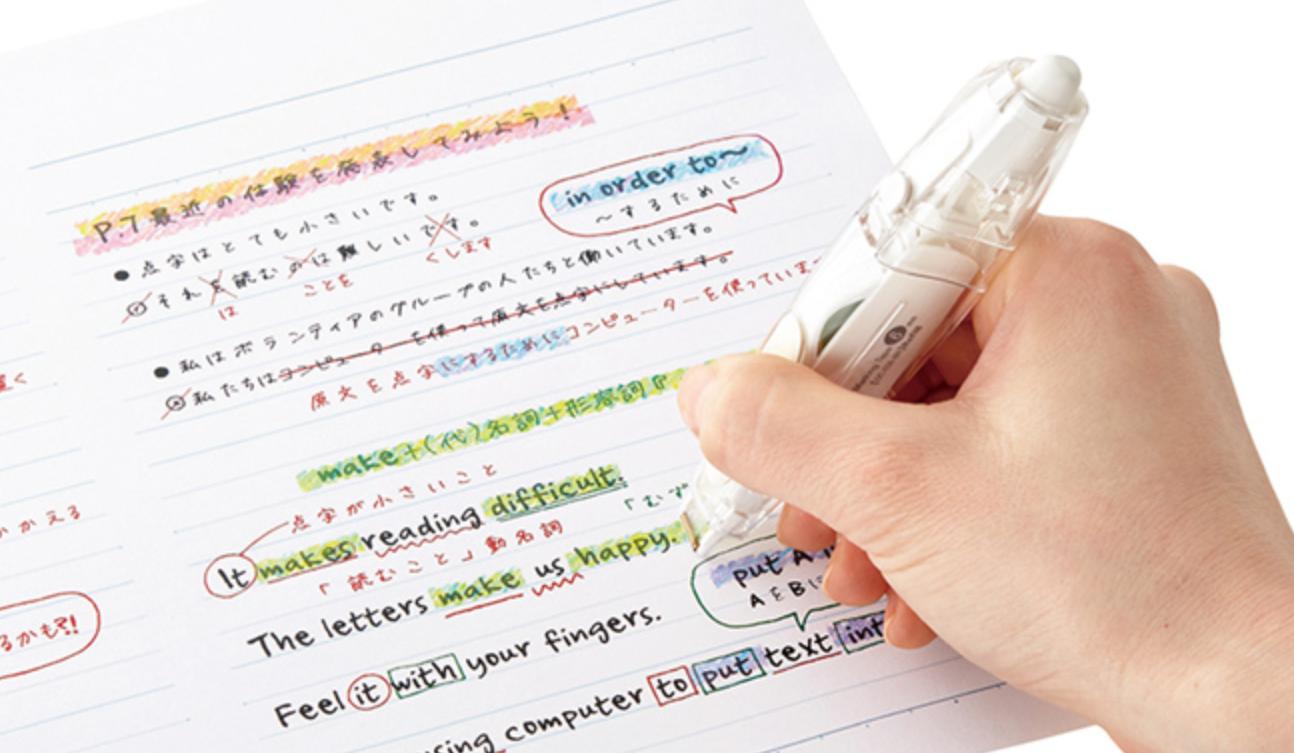 P.7 最近の体験を発表してみよう!
in order to〜
〜するために
● 点字はとても小さいです。
それを読むのは難しいです。
は ことを くします
● 私はボランティアのグループの人たちと働いています。
私たちはコンピューターを使って原文を点字にしています。
原文を点字にするためにコンピューターを使っていま
make+(代)名詞+形容詞『
点字が小さいこと
It makes reading difficult.
「読むこと」動名詞
「むず
The letters make us happy.
put A
AをBに
Feel it with your fingers.
using computer to put text int
かえる
るかも?!